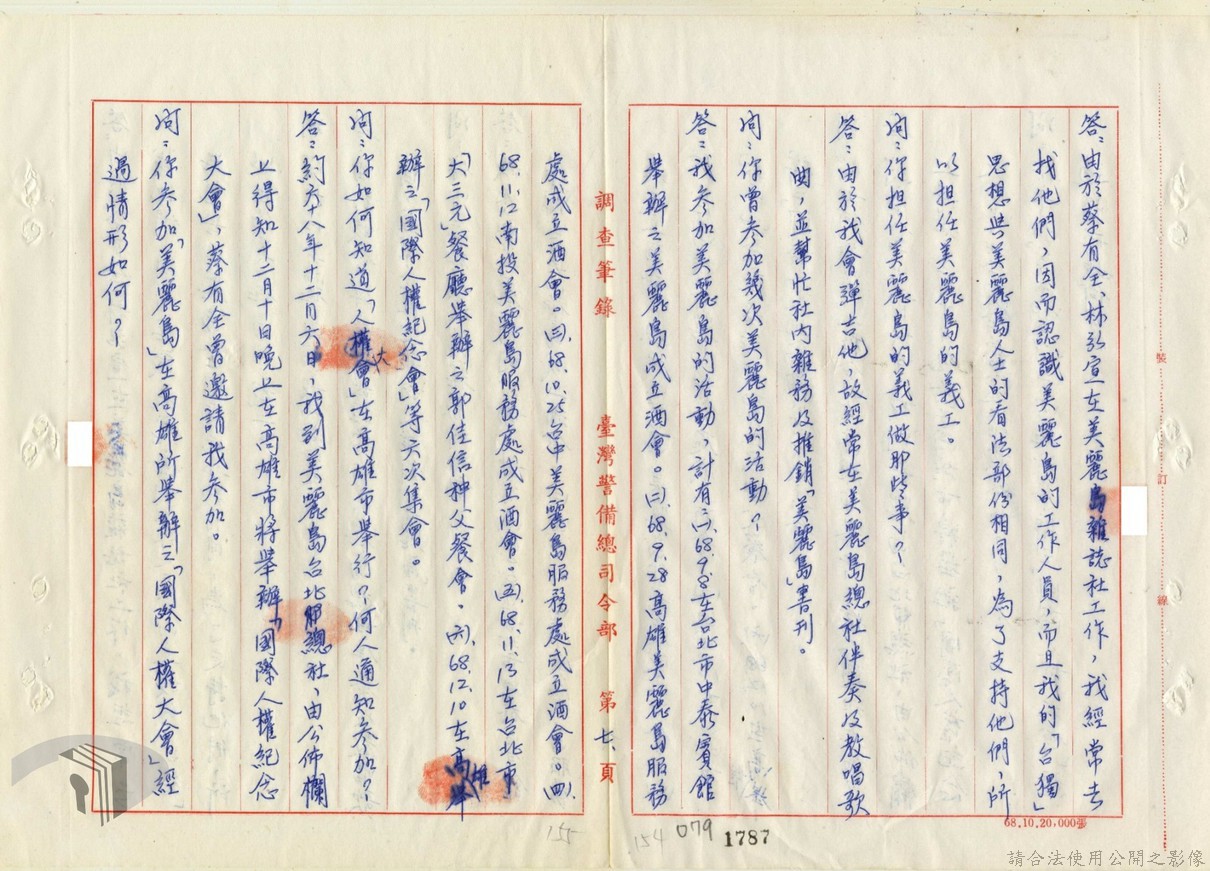 答：由於蔡有全、林弘宣在美麗島雜誌社工作，我經常去
找他們，因而認識美麗島的工作人員，而且我的「台獨」
思想與美麗島人士的看法部份相同，為了支持他們，所
以担任美麗島的義工。
問：你担任美麗島的義工做那些事？
答：由於我會彈吉他，故經常在美麗島總社伴奏及教唱歌
曲，並幫忙社內雜務及推銷「美麗島」書刊。
問：你曾參加幾次美麗島的活動？
答：我參加美麗島的活動，計有㈠、68.9.8.在台北市中泰賓館
舉辦之美麗島成立酒會。㈡、68.9.28高雄美麗島服務
調查筆錄 臺灣警備總司令部 第七、頁
處成立酒會。㈢、68.10.25台中美麗島服務處成立酒會。㈣、
68.11.12南投美麗島服務處成立酒會。㈤、68.11.13在台北市
「大三元」餐廳舉辦之郭佳信神父餐會、㈥、68.12.10在高雄舉
辦之「國際人權紀念會」等六次集會。
問：你如何知道「人權大會」在高雄市舉行？何人通知參加？
答：約六十八年十二月六日，我到美麗島台北總社，由公佈欄
上得知十二月十日晚上在高雄市將舉辦「國際人權紀念
大會」，蔡有全曾邀請我參加。
問：你參加「美麗島」在高雄所舉辦之「國際人權大會」經
過情形如何？
裝 訂 線
68.10.20,000張
155
154
079
1787
請合法使用公開之影像